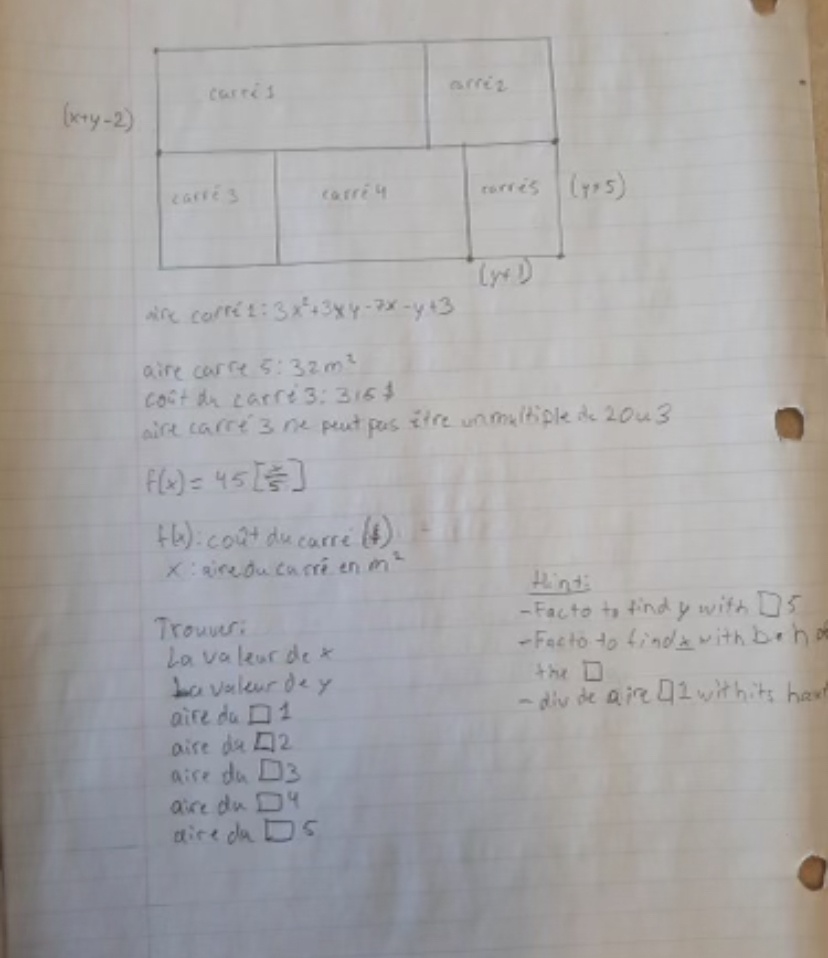 carré 1
carré 2
(x+y-2)
carré 3
carré 4
carré 5
(y+5)
(y+1)
aire carré 1: 3x²+3xy-7x-y+3
aire carre 5: 32m²
coût du carré 3: 315$
aire carré 3 ne peut pas être un multiple de 2 ou 3
f(x) = 45[x/5]
f(x): coût du carré ($)
x: aire du carré en m²
Trouver:
La valeur de x
La valeur de y
aire du □ 1
aire du □ 2
aire du □ 3
aire du □ 4
aire du □ 5
Hint:
- Facto to find y with □ 5
- Facto to find x with b h
the □
- div de aire □ 1 with its